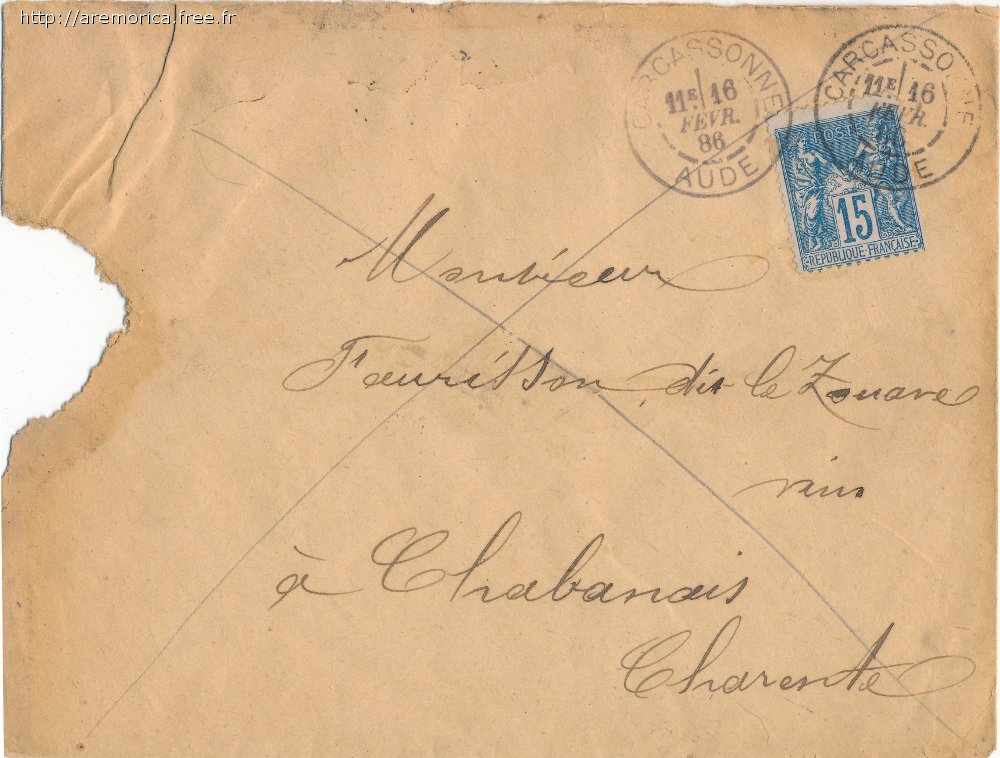 http://aremorica.free.fr
CARCASSONNE
11E 16
FEVR.
86
AUDE
CARCASSONNE
11E 16
FEVR.
AUDE
POSTES
15
REPUBLIQUE FRANCAISE
Monsieur
Faurisson dit le Zouave
vins
à Chabanais
Charente